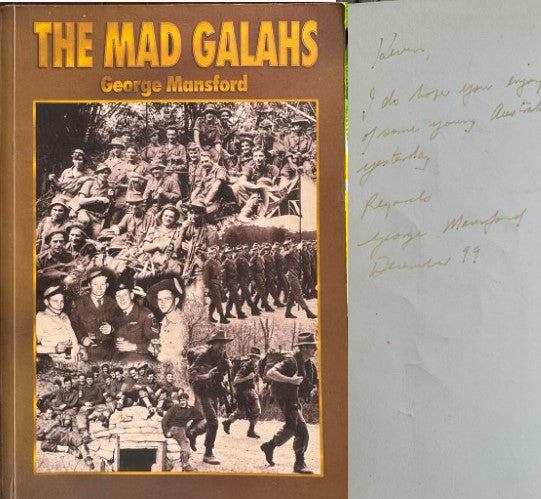 THE MAD GALAHS
George Mansford
Kevin,
I do hope you enjoy
of some young Austral
yesterday
Regards
George Mansford
December 99